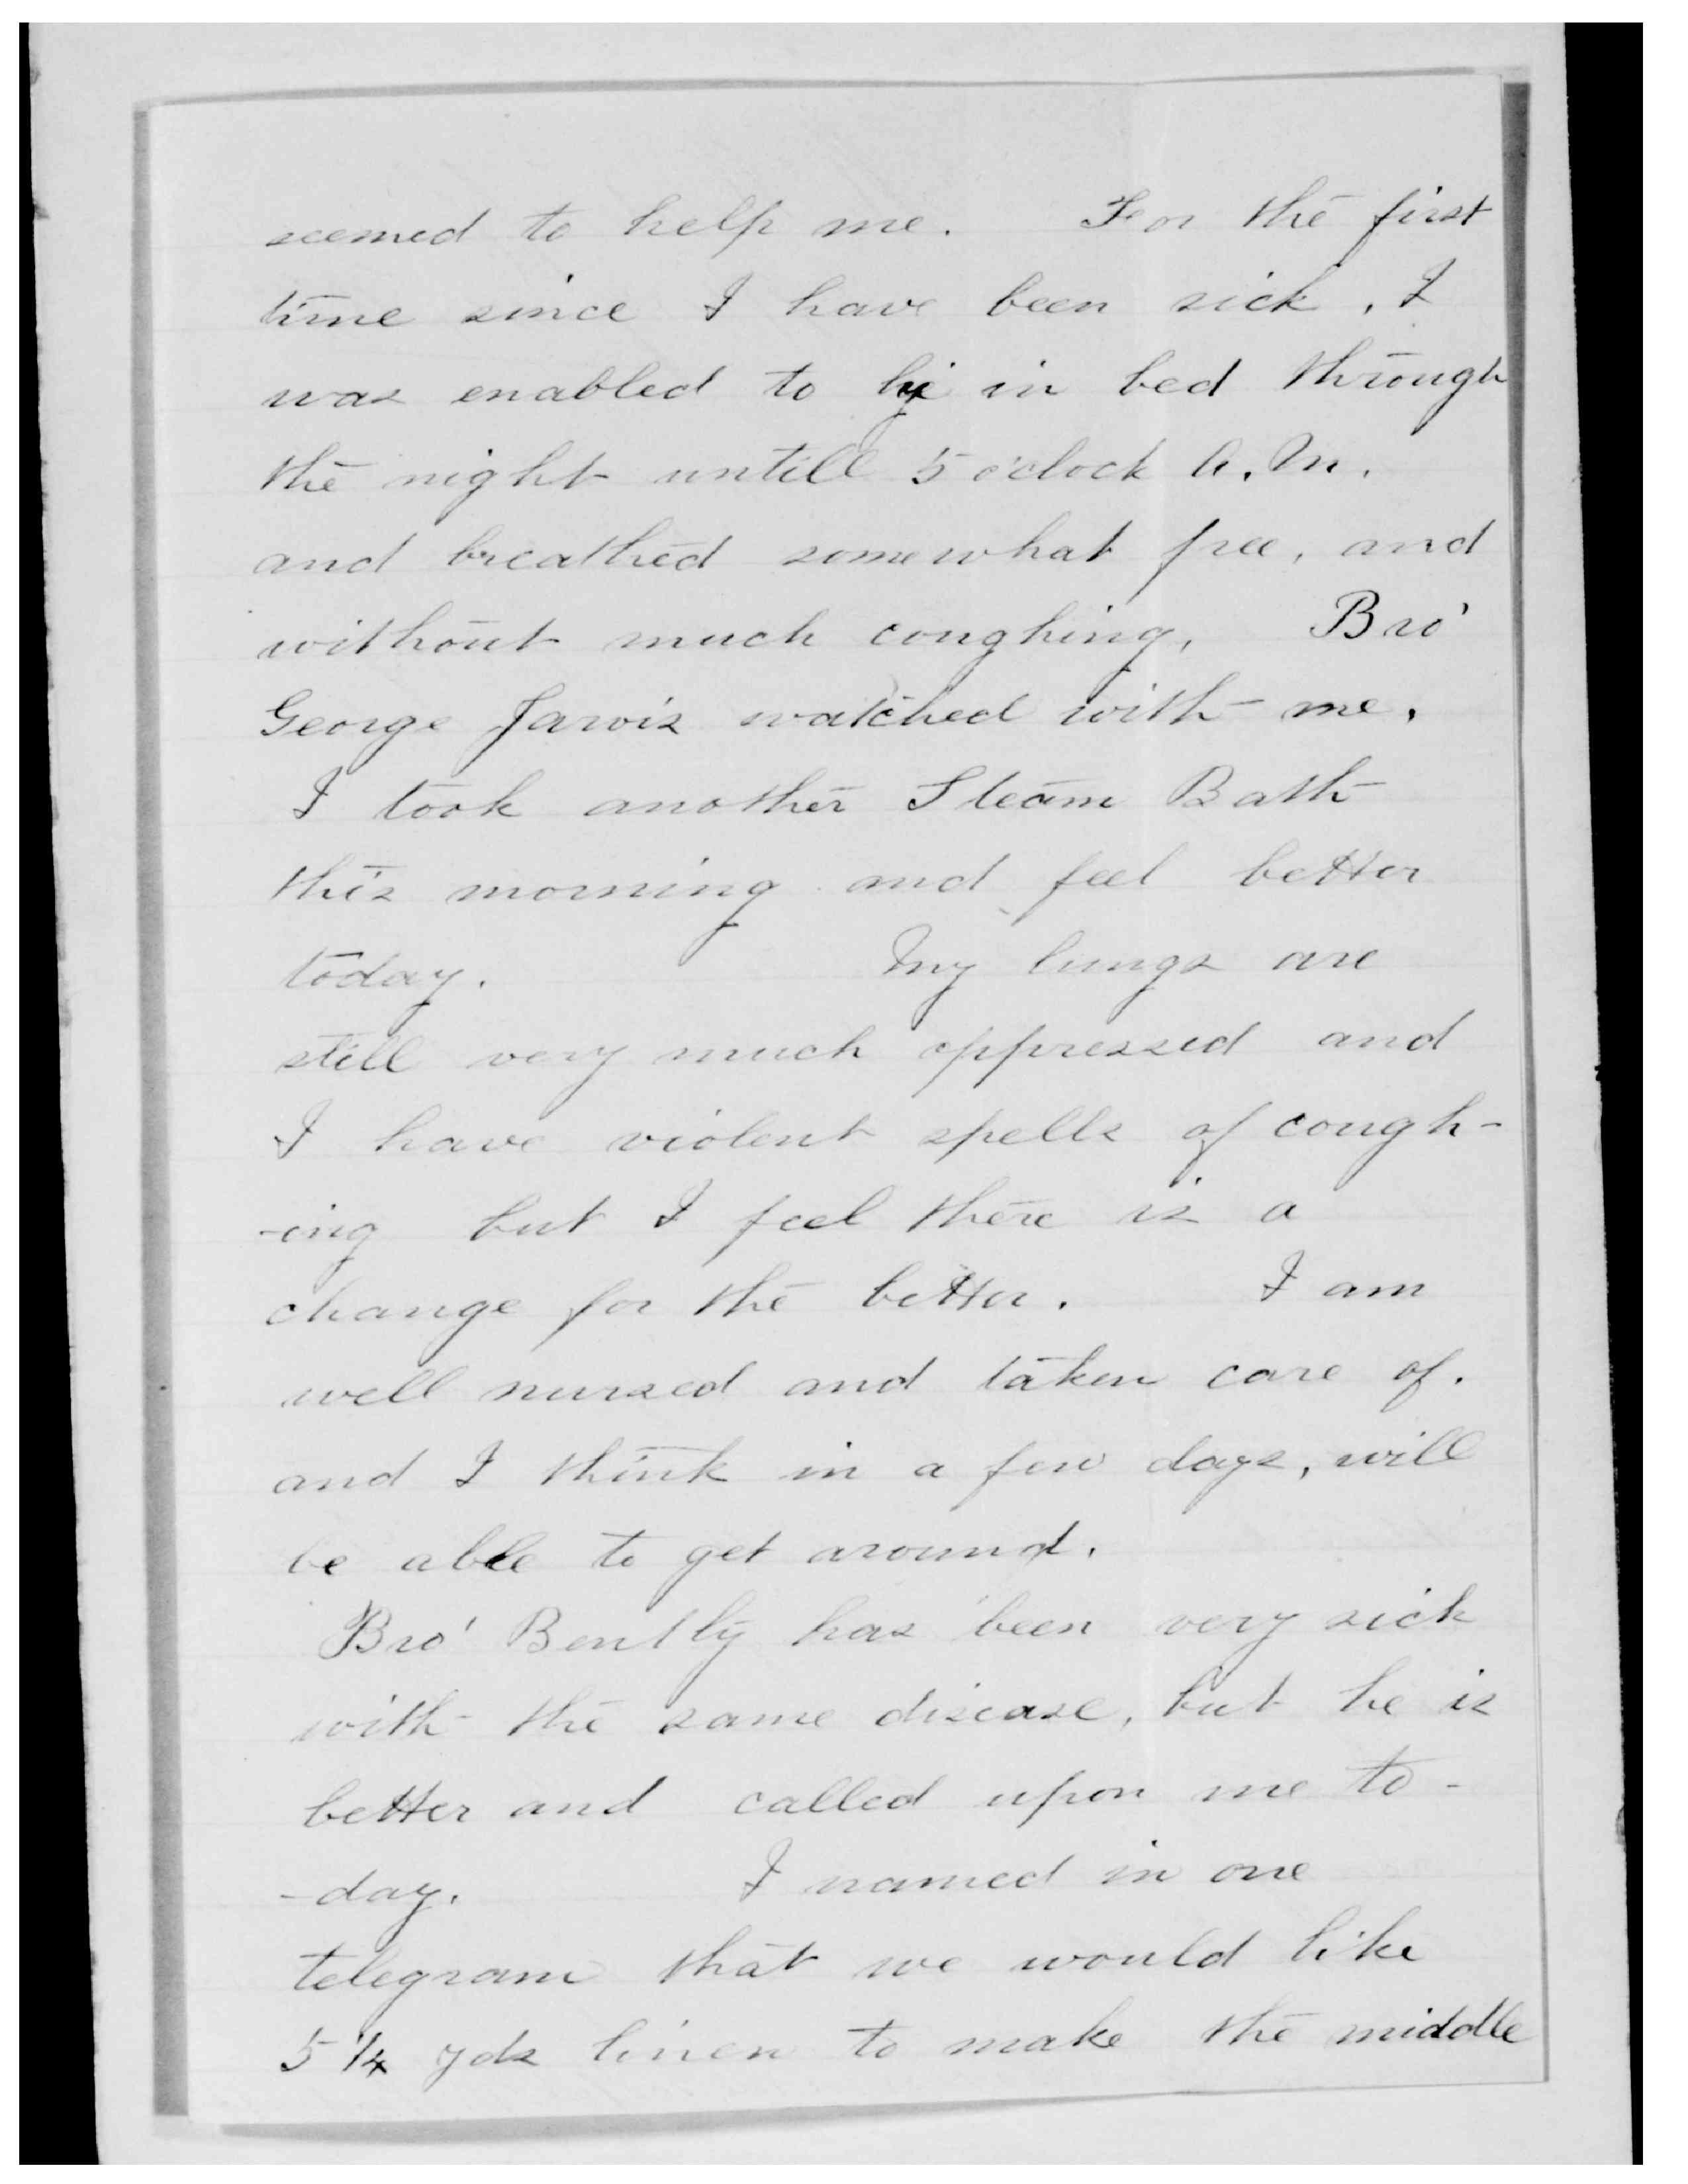 seemed to help me. For the first
time since I have been sick, I
was enabled to lie in bed through
the night untill 5 o'clock A.M.
and breathed somewhat free, and
without much coughing. Bro'
George Jarvis watched with me.
I took another Steam Bath
this morning and feel better
today. My lungs are
still very much oppressed and
I have violent spells of cough-
-ing but I feel there is a
change for the better. I am
well nursed and taken care of.
and I think in a few days, will
be able to get around.
Bro' Bently has been very sick
with the same disease, but he is
better and called upon me to-
-day. I named in one
telegram that we would like
5 1/4 yds linen to make the middle